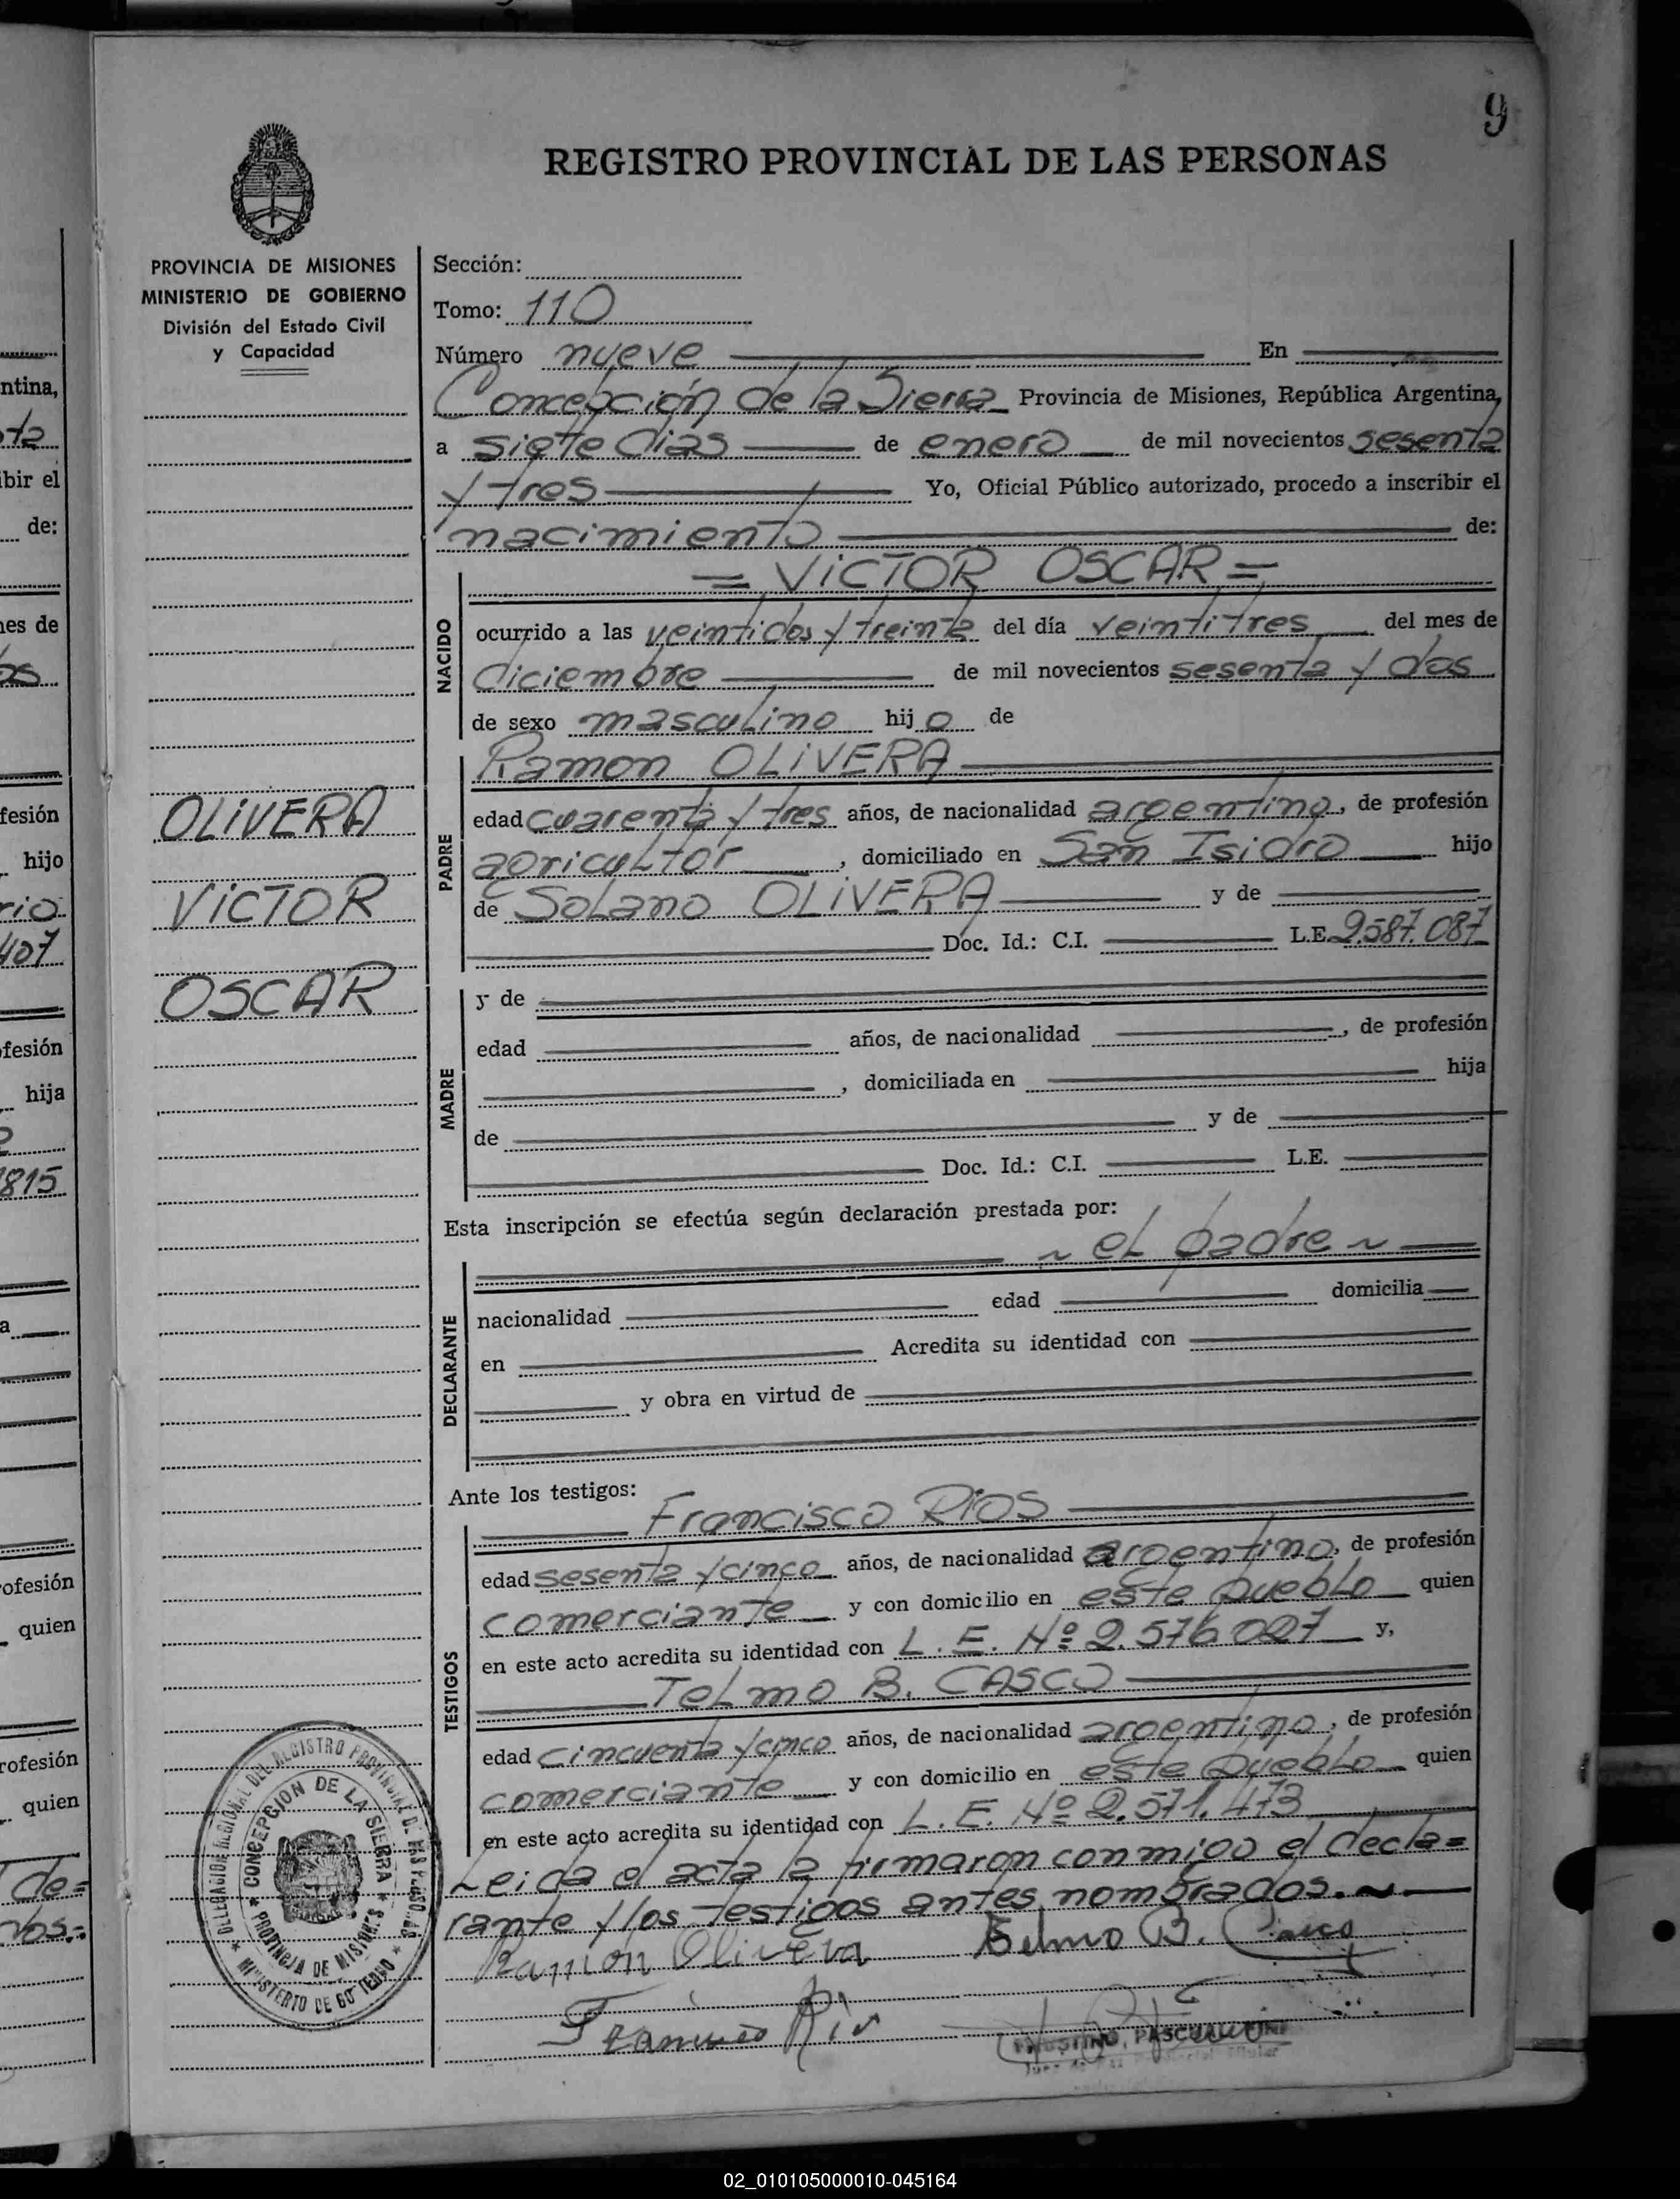 9
REGISTRO PROVINCIAL DE LAS PERSONAS
PROVINCIA DE MISIONES
MINISTERIO DE GOBIERNO
División del Estado Civil
y Capacidad
OLIVERA
VICTOR
OSCAR
Sección:
Tomo: 110
Número nueve En
Concepción de la Sierra Provincia de Misiones, República Argentina,
a siete dias de enero de mil novecientos sesenta
y tres Yo, Oficial Público autorizado, procedo a inscribir el
nacimiento de:
= VICTOR OSCAR =
NACIDO
ocurrido a las veintidos y treinta del día veintitres del mes de
diciembre de mil novecientos sesenta y dos
de sexo masculino hijo de
Ramon OLIVERA
PADRE
edad cuarenta y tres años, de nacionalidad argentino, de profesión
agricultor, domiciliado en San Isidro hijo
de Solano OLIVERA y de
Doc. Id.: C.I. L.E. 2.587.087
MADRE
y de
edad años, de nacionalidad , de profesión
, domiciliada en hija
de y de
Doc. Id.: C.I. L.E.
Esta inscripción se efectúa según declaración prestada por:
~ el padre ~
DECLARANTE
nacionalidad edad domicilia
en Acredita su identidad con
y obra en virtud de
Ante los testigos:
Francisco RIOS
TESTIGOS
edad sesenta y cinco años, de nacionalidad argentino, de profesión
comerciante y con domicilio en este pueblo quien
en este acto acredita su identidad con L. E. Nº 2.576.027 y,
Telmo B. CASCO
edad cincuenta y cinco años, de nacionalidad argentino, de profesión
comerciante y con domicilio en este pueblo quien
en este acto acredita su identidad con L. E. Nº 2.571.473
Leida el acta la firmaron conmigo el decla=
rante y los testigos antes nombrados. ~
Ramon Olivera Telmo B. Casco
Francisco Rios
DELEGACION REGIONAL DEL REGISTRO PROVINCIAL DE LAS PERSONAS
* CONCEPCION DE LA SIERRA *
PROVINCIA DE MISIONES
* MINISTERIO DE GOBIERNO *
ntina,
ibir el
de:
nes de
fesión
hijo
rio
407
fesión
hija
815
a
ofesión
quien
rofesión
quien
de=
02_010105000010-045164